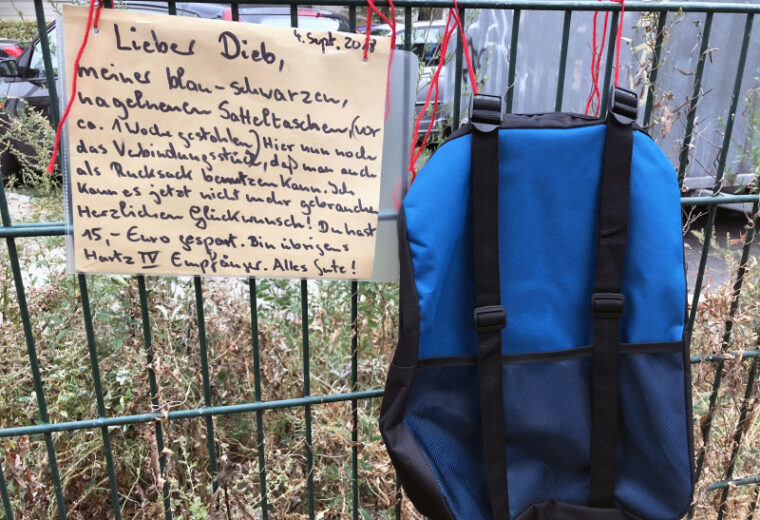 4. Sept. 2018
Lieber Dieb,
meiner blau-schwarzen,
nagelneuen Satteltaschen, (vor
ca. 1 Woche gestohlen) Hier nun noch
das Verbindungsstück, daß man auch
als Rucksack benutzen kann. Ich
kann es jetzt nicht mehr gebrauchen
Herzlichen Glückwunsch! Du hast
15,- Euro gespart. Bin übrigens
Hartz IV Empfänger. Alles Gute!